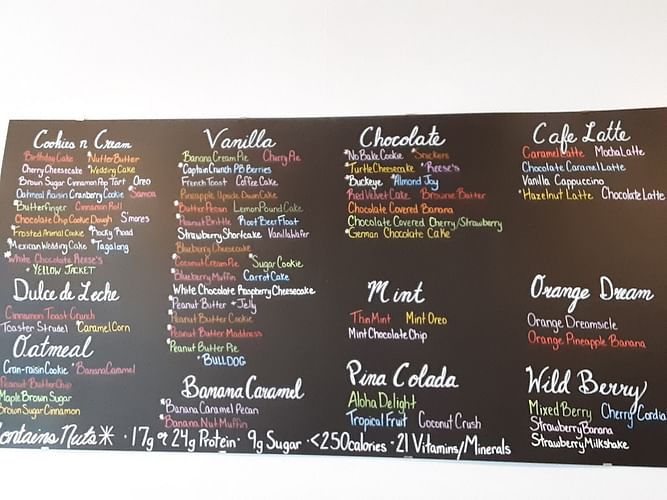 Cookies n Cream
Birthday Cake *Nutter Butter
Cherry Cheesecake *Wedding Cake
Brown Sugar Cinnamon Pop Tart Oreo
Oatmeal Raisin Cranberry Cookie Samoa
*Butterfinger Cinnamon Roll
Chocolate Chip Cookie Dough S'mores
*Frosted Animal Cookie *Rocky Road
*Mexican Wedding Cake *Tagalong
*White Chocolate Reese's
*YELLOW JACKET
Dulce de Leche
Cinnamon Toast Crunch
Toaster Strudel *Caramel Corn
Oatmeal
Cran-raisin Cookie *Banana Caramel
Peanut Butter Chip
Maple Brown Sugar
Brown Sugar Cinnamon
Vanilla
Banana Cream Pie Cherry Pie
*Captain Crunch PB Berries
French Toast Coffee Cake
Pineapple Upside Down Cake
*Butter Pecan Lemon Pound Cake
*Peanut Brittle Root Beer Float
Strawberry Shortcake Vanilla Wafer
Blueberry Cheesecake
*Coconut Cream Pie *Sugar Cookie
*Blueberry Muffin *Carrot Cake
White Chocolate Raspberry Cheesecake
*Peanut Butter + Jelly
*Peanut Butter Cookie
*Peanut Butter Maddness
*Peanut Butter Pie
*BULLDOG
Banana Caramel
*Banana Caramel Pecan
*Banana Nut Muffin
Chocolate
*No Bake Cookie *Snickers
*Turtle Cheesecake *Reese's
*Buckeye *Almond Joy
Red Velvet Cake Brownie Batter
Chocolate Covered Banana
Chocolate Covered Cherry/Strawberry
*German Chocolate Cake
Mint
Thin Mint Mint Oreo
Mint Chocolate Chip
Pina Colada
Aloha Delight
Tropical Fruit Coconut Crush
Cafe Latte
Caramel Latte Mocha Latte
Chocolate Caramel Latte
Vanilla Cappuccino
*Hazelnut Latte Chocolate Latte
Orange Dream
Orange Dreamsicle
Orange Pineapple Banana
Wild Berry
Mixed Berry Cherry Cordia
Strawberry Banana
Strawberry Milkshake
Contains Nuts* · 17g or 24g Protein · 9g Sugar · <250calories · 21 Vitamins/Minerals